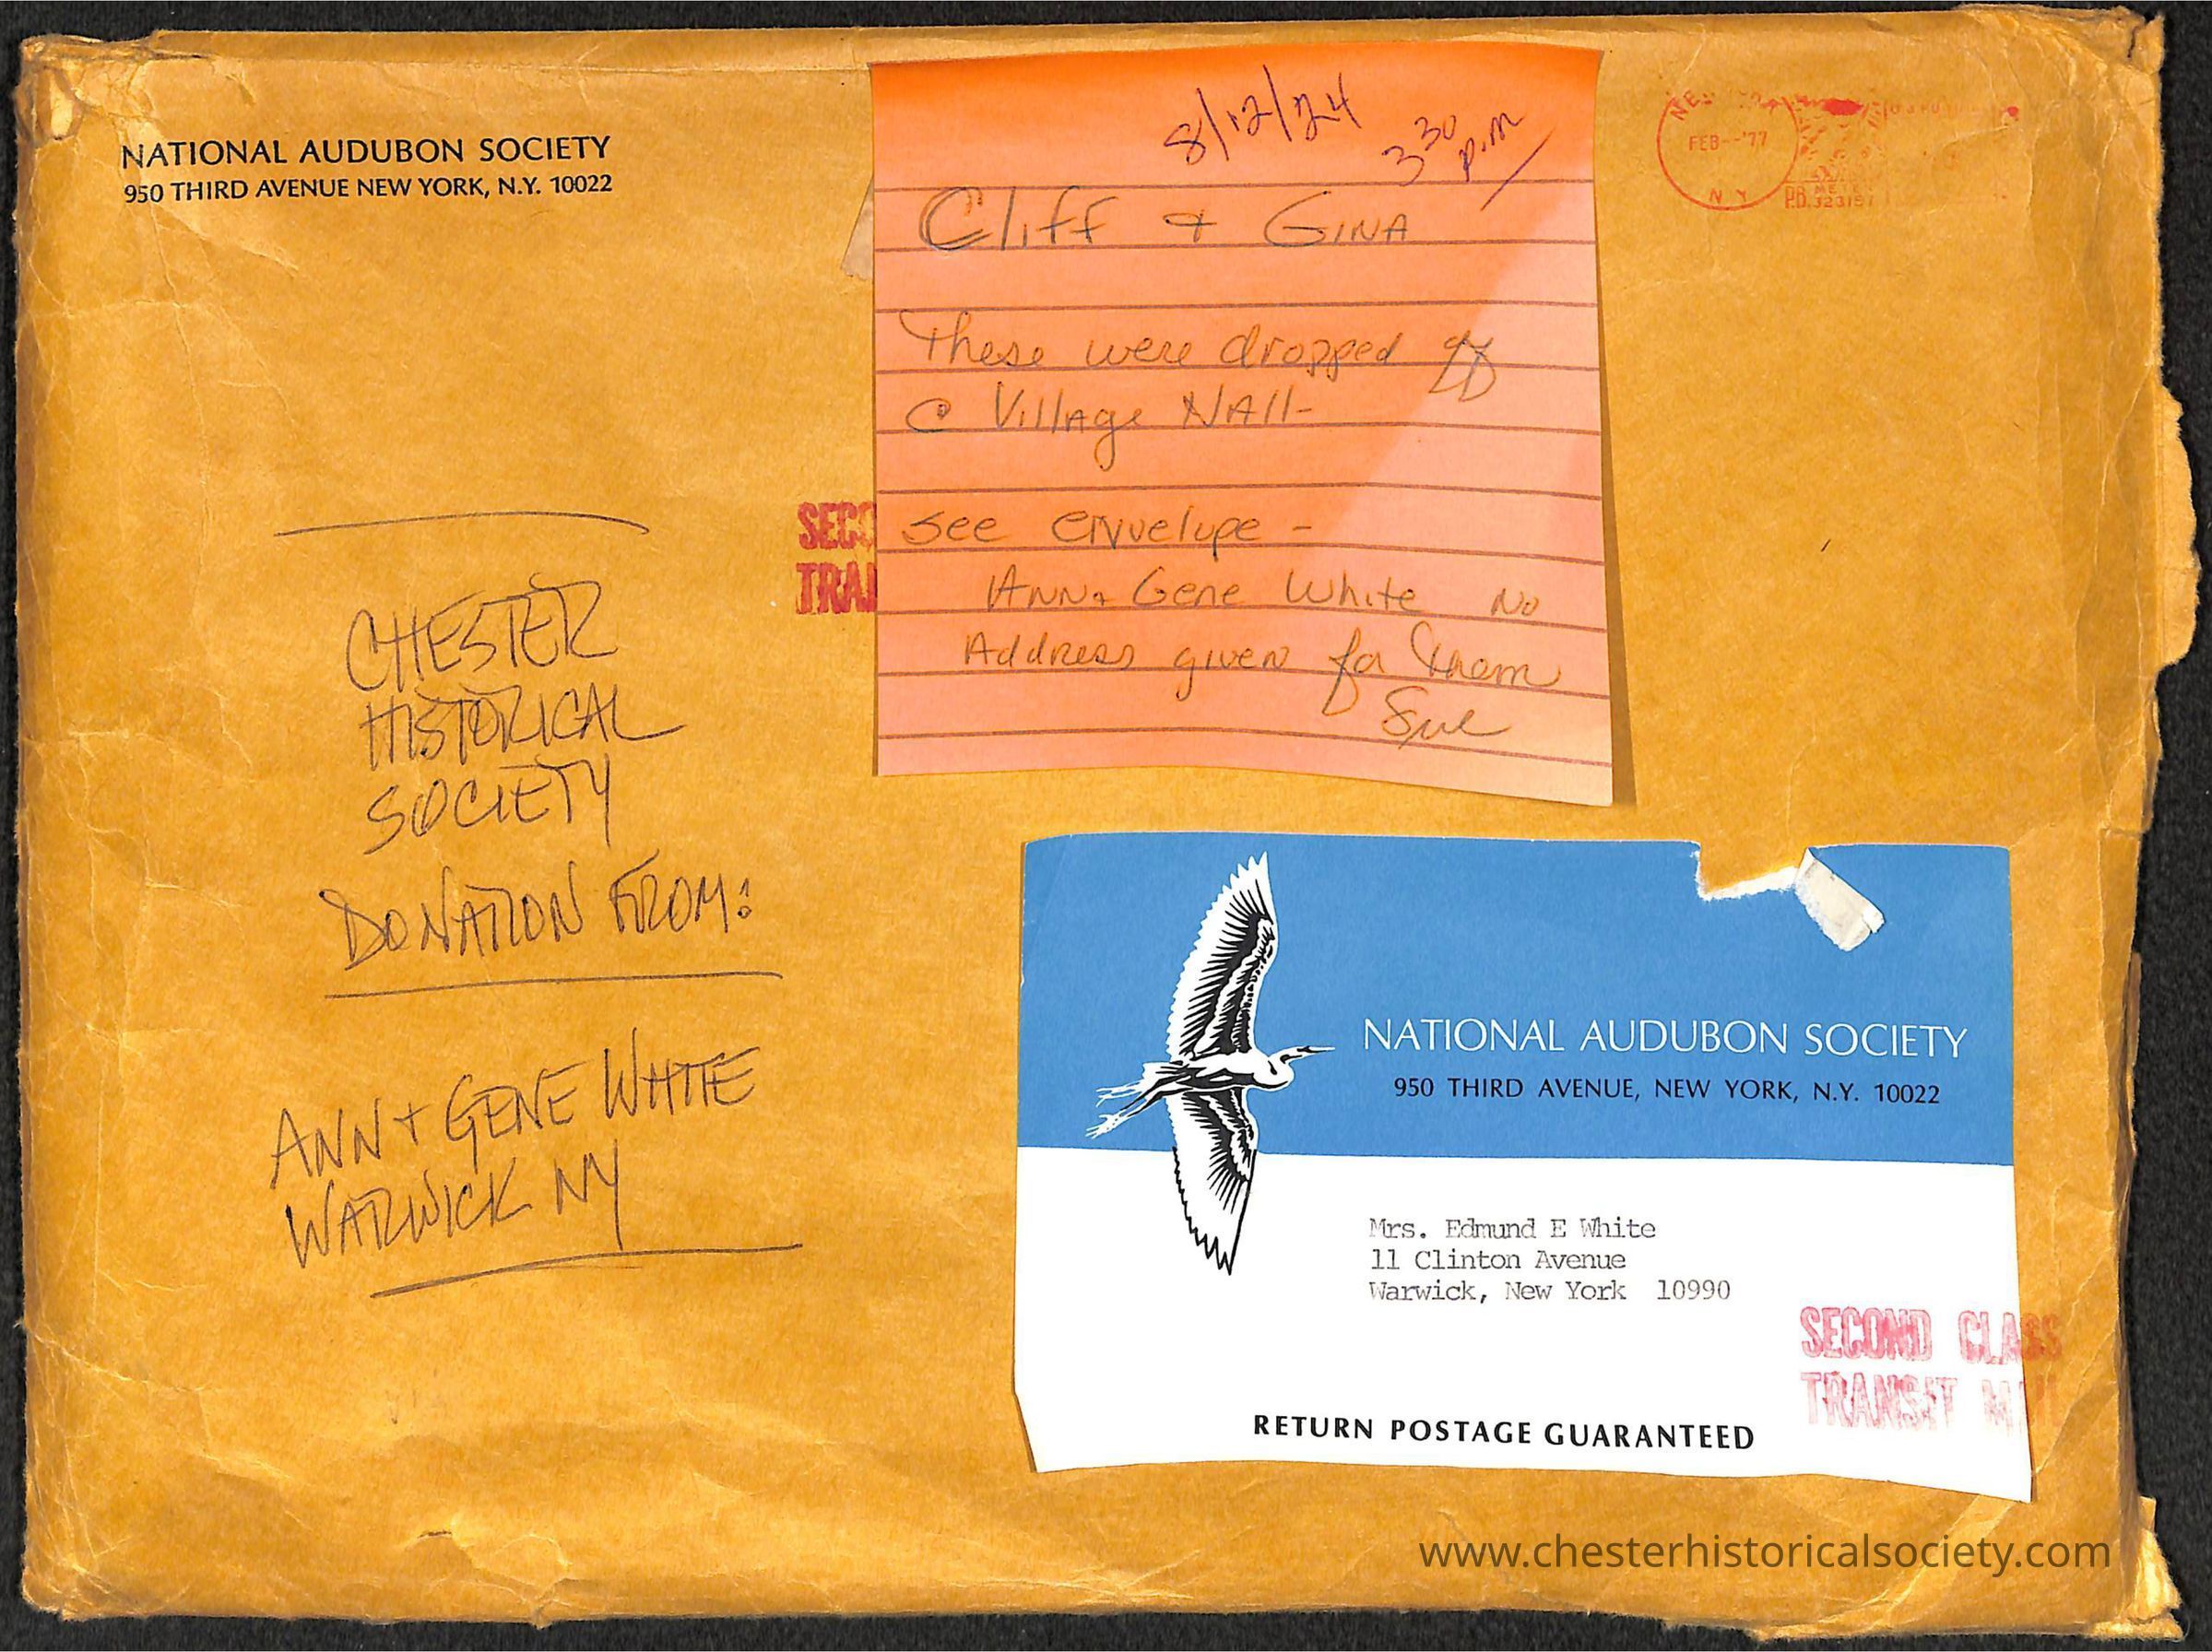 NATIONAL AUDUBON SOCIETY
950 THIRD AVENUE NEW YORK, N.Y. 10022
FEB--'77
N Y
P.B. METER
8/12/24
3 30 p.m
Cliff + GINA
These were dropped off
@ Village HAll-
See envelope -
ANN + Gene White No
Address given for them
Sue
SECO
TRAN
CHESTER
HISTORICAL
SOCIETY
DONATION FROM:
ANN + GENE WHITE
WARWICK NY
NATIONAL AUDUBON SOCIETY
950 THIRD AVENUE, NEW YORK, N.Y. 10022
Mrs. Edmund E White
11 Clinton Avenue
Warwick, New York 10990
SECOND CLASS
TRANSIT
RETURN POSTAGE GUARANTEED
www.chesterhistoricalsociety.com